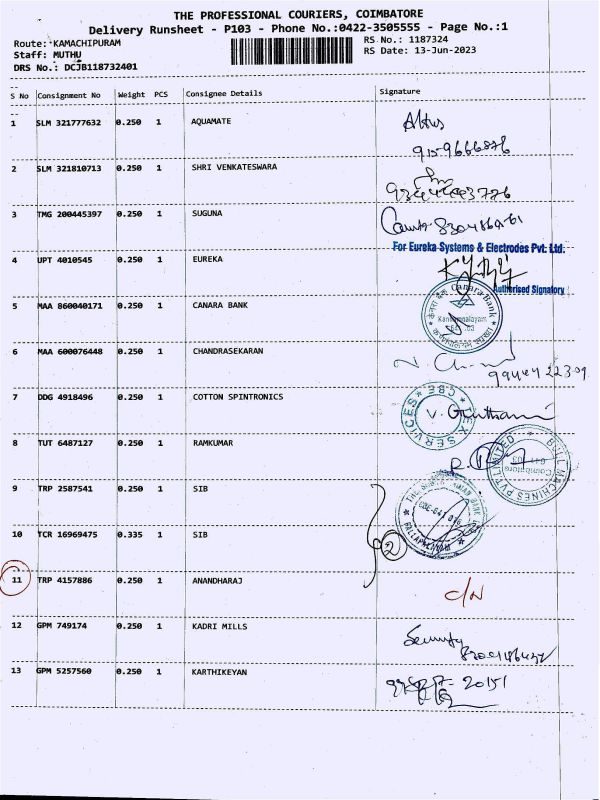 THE PROFESSIONAL COURIERS, COIMBATORE
Delivery Runsheet - P103 - Phone No.:0422-3505555 - Page No.:1
Route: KAMACHIPURAM
RS No.: 1187324
Staff: MUTHU
RS Date: 13-Jun-2023
DRS No.: DCJB118732401
S No Consignment No Weight PCS Consignee Details Signature
1 SLM 321777632 0.250 1 AQUAMATE
2 SLM 321810713 0.250 1 SHRI VENKATESWARA
3 TMG 200445397 0.250 1 SUGUNA
For Eureka Systems & Electrodes Pvt. Ltd.
4 UPT 4010545 0.250 1 EUREKA
Authorised Signatory
5 MAA 860040171 0.250 1 CANARA BANK
Canara Bank
6 MAA 600076448 0.250 1 CHANDRASEKARAN
7 DDG 4918496 0.250 1 COTTON SPINTRONICS
SERVICES * CBE *
8 TUT 6487127 0.250 1 RAMKUMAR
MACHINES PVT LIMITED
Coimbatore
9 TRP 2587541 0.250 1 SIB
10 TCR 16969475 0.335 1 SIB
2
11 TRP 4157886 0.250 1 ANANDHARAJ
C/N
12 GPM 749174 0.250 1 KADRI MILLS
Security
13 GPM 5257560 0.250 1 KARTHIKEYAN